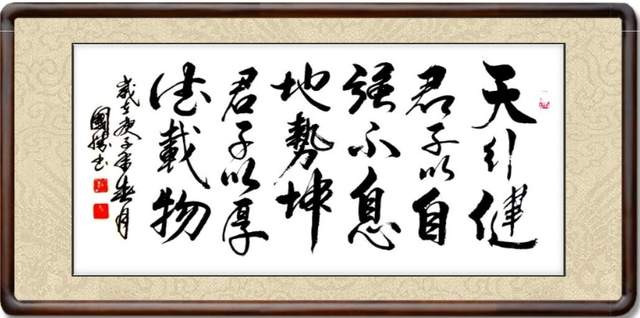 天行健
君子以自
强不息
地勢坤
君子以厚
德載物
歲在庚子年春月
國 书